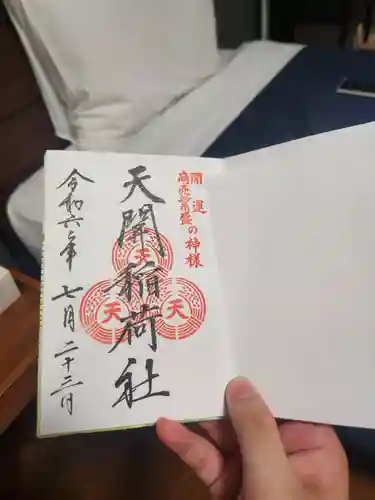 開運
商売繁盛の神様
天開稲荷社
天
天
天
令和六年七月二十三日